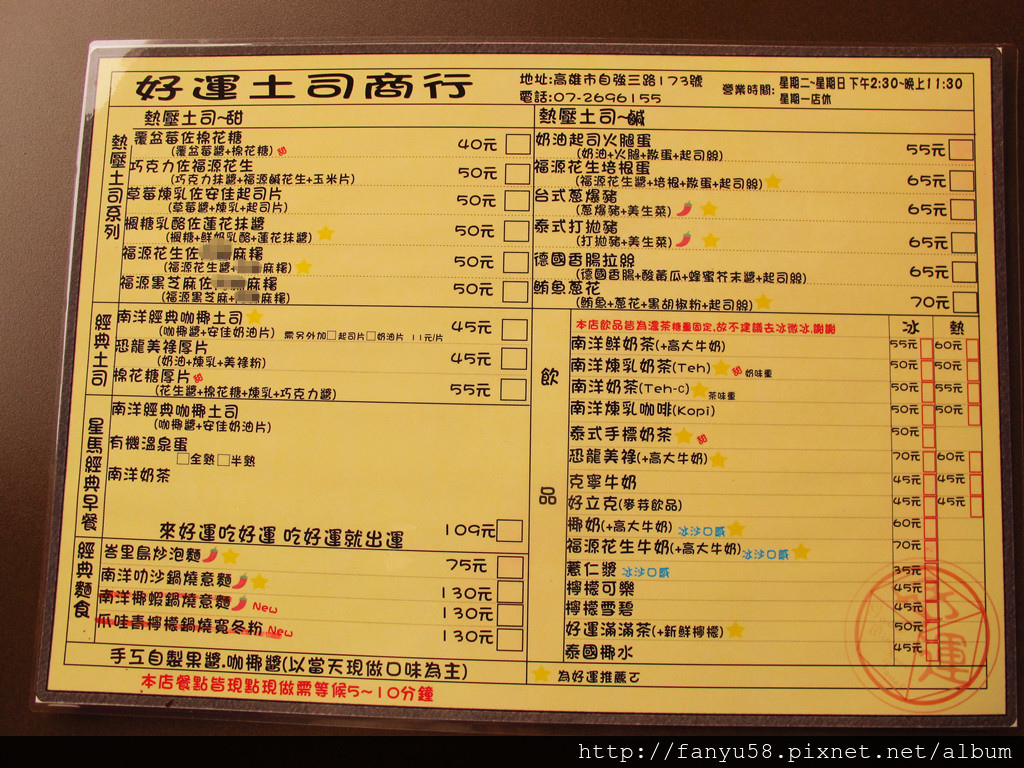 好運土司商行
地址:高雄市自強三路173號
電話:07-2696155
營業時間:
星期二~星期日 下午2:30~晚上11:30
星期一店休
熱壓土司~甜
熱壓土司系列
覆盆莓佐棉花糖 40元
(覆盆莓醬+棉花糖) 甜
巧克力佐福源花生 50元
(巧克力抹醬+福源鹹花生+玉米片)
草莓煉乳佐安佳起司片 50元
(草莓醬+煉乳+起司片)
楓糖乳酪佐蓮花抹醬 50元
(楓糖+鮮奶乳酪+蓮花抹醬)
福源花生佐 麻糬 50元
(福源花生醬+ 麻糬)
福源黑芝麻佐 麻糬 50元
(福源黑芝麻+ 麻糬)
經典土司
南洋經典咖椰土司 45元
(咖椰醬+安佳奶油片) 需另外加□起司片□奶油片 11元/片
恐龍美祿厚片 45元
(奶油+煉乳+美祿粉)
棉花糖厚片 甜 55元
(花生醬+棉花糖+煉乳+巧克力醬)
星馬經典早餐
南洋經典咖椰土司
(咖椰醬+安佳奶油片)
有機溫泉蛋
□全熟□半熟
南洋奶茶
來好運吃好運 吃好運就出運 109元
經典麵食
峇里島炒泡麵 75元
南洋叻沙鍋燒意麵 130元
南洋椰蝦鍋燒意麵 New 130元
爪哇青檸檬鍋燒寬冬粉 New 130元
手工自製果醬.咖椰醬(以當天現做口味為主)
本店餐點皆現點現做需等候5~10分鐘
熱壓土司~鹹
奶油起司火腿蛋 55元
(奶油+火腿+散蛋+起司絲)
福源花生培根蛋 65元
(福源花生醬+培根+散蛋+起司絲)
台式蔥爆豬 65元
(蔥爆豬+美生菜)
泰式打拋豬 65元
(打拋豬+美生菜)
德國香腸拉絲 65元
(德國香腸+酸黃瓜+蜂蜜芥末醬+起司絲)
鮪魚蔥花 70元
(鮪魚+蔥花+黑胡椒粉+起司絲)
飲品
本店飲品皆為濃茶糖量固定,故不建議去冰微冰,謝謝 冰 熱
南洋鮮奶茶(+高大牛奶) 55元 60元
南洋煉乳奶茶(Teh) 甜 奶味重 50元 50元
南洋奶茶(Teh-C) 茶味重 50元 55元
南洋煉乳咖啡(Kopi) 50元 50元
泰式手標奶茶 甜 50元
恐龍美祿(+高大牛奶) 70元 60元
克寧牛奶 45元 45元
好立克(麥芽飲品) 45元 45元
椰奶(+高大牛奶) 冰沙口感 60元
福源花生牛奶(+高大牛奶)冰沙口感 70元
薏仁漿 冰沙口感 35元
檸檬可樂 45元
檸檬雪碧 45元
好運滿滿茶(+新鮮檸檬) 50元
泰國椰水 45元
為好運推薦ㄛ
http://fanyu58.pixnet.net/album